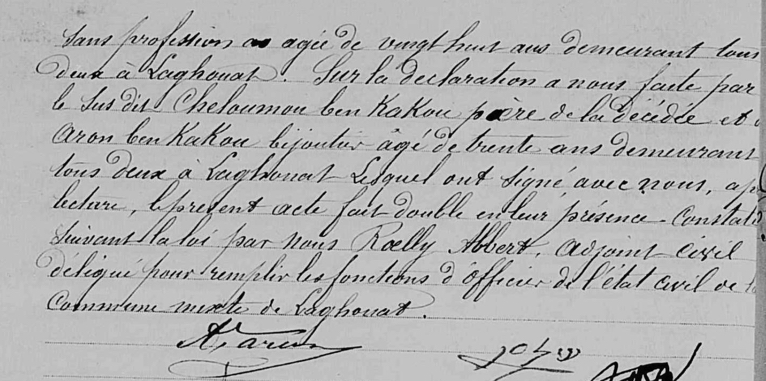 Sans profession agée de vingt huit ans demeurant tous
deux à Laghouat. Sur la declaration a nous faite par
le Sus dit Cheloumou ben Kakou père de la décédée et
Aron ben Kakou bijoutier âgé de trente ans demeurant
tous deux à Laghouat Lesquel ont signé avec nous,
lecture, le present acte fait double en leur présence. Constaté
suivant la loi par nous Roelly Albert, adjoint civil
délégué pour remplir les fonctions d'officier de l'état civil de
Commune mixte de Laghouat.